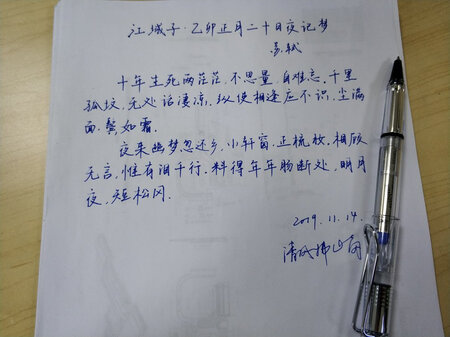 江城子·乙卯正月二十日夜记梦
苏轼
十年生死两茫茫,不思量,自难忘,千里
孤坟,无处话凄凉,纵使相逢应不识,尘满
面,鬓如霜.
夜来幽梦忽还乡,小轩窗,正梳妆,相顾
无言,惟有泪千行,料得年年肠断处,明月
夜,短松冈.
2019.11.14.